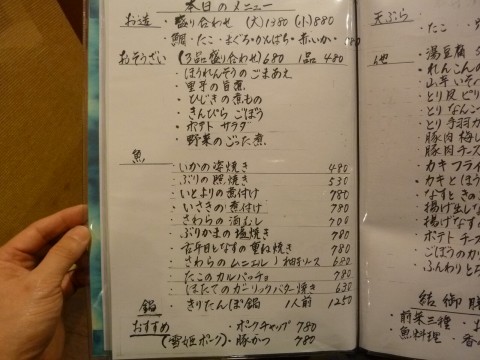 本日のメニュー
お造 ・盛り合わせ (大)1380 (小)880
・鯛・たこ・まぐろ・かんぱち・赤いか
おそうざい (3品盛り合わせ)680 1品 480
・ほうれんそうのごまあえ
・里芋の旨煮
・ひじきの煮もの
・きんぴら ごぼう
・ポテト サラダ
・野菜のごった煮
魚
・いかの姿焼き 480
・ぶりの照焼き 530
・いとよりの煮付け 780
・いさきの煮付け 780
・さわらの酒むし 700
・ぶりかまの塩焼き 780
・なすの重ね焼き 780
・さわらのムニエル 680
・たこのカルパッチョ 780
・ほたてのガーリックバター焼き 630
鍋 ・きりたんぽ鍋 1人前 1250
おすすめ ・ポークチャップ 780
(雪姫ポーク)・豚かつ 780
天ぷら
・たこ
・湯豆腐
・れんこんの
・山芋
・とり皮
・とりなんこ
・とり手羽
・豚肉 梅し
・豚肉チーズ
・カキフライ
・カキとほう
・なすときの
・揚げ出し
・揚げなす
・ポテト チーズ
・ごぼうのか
・ふんわりと
結御膳
・前菜三種
・魚料理